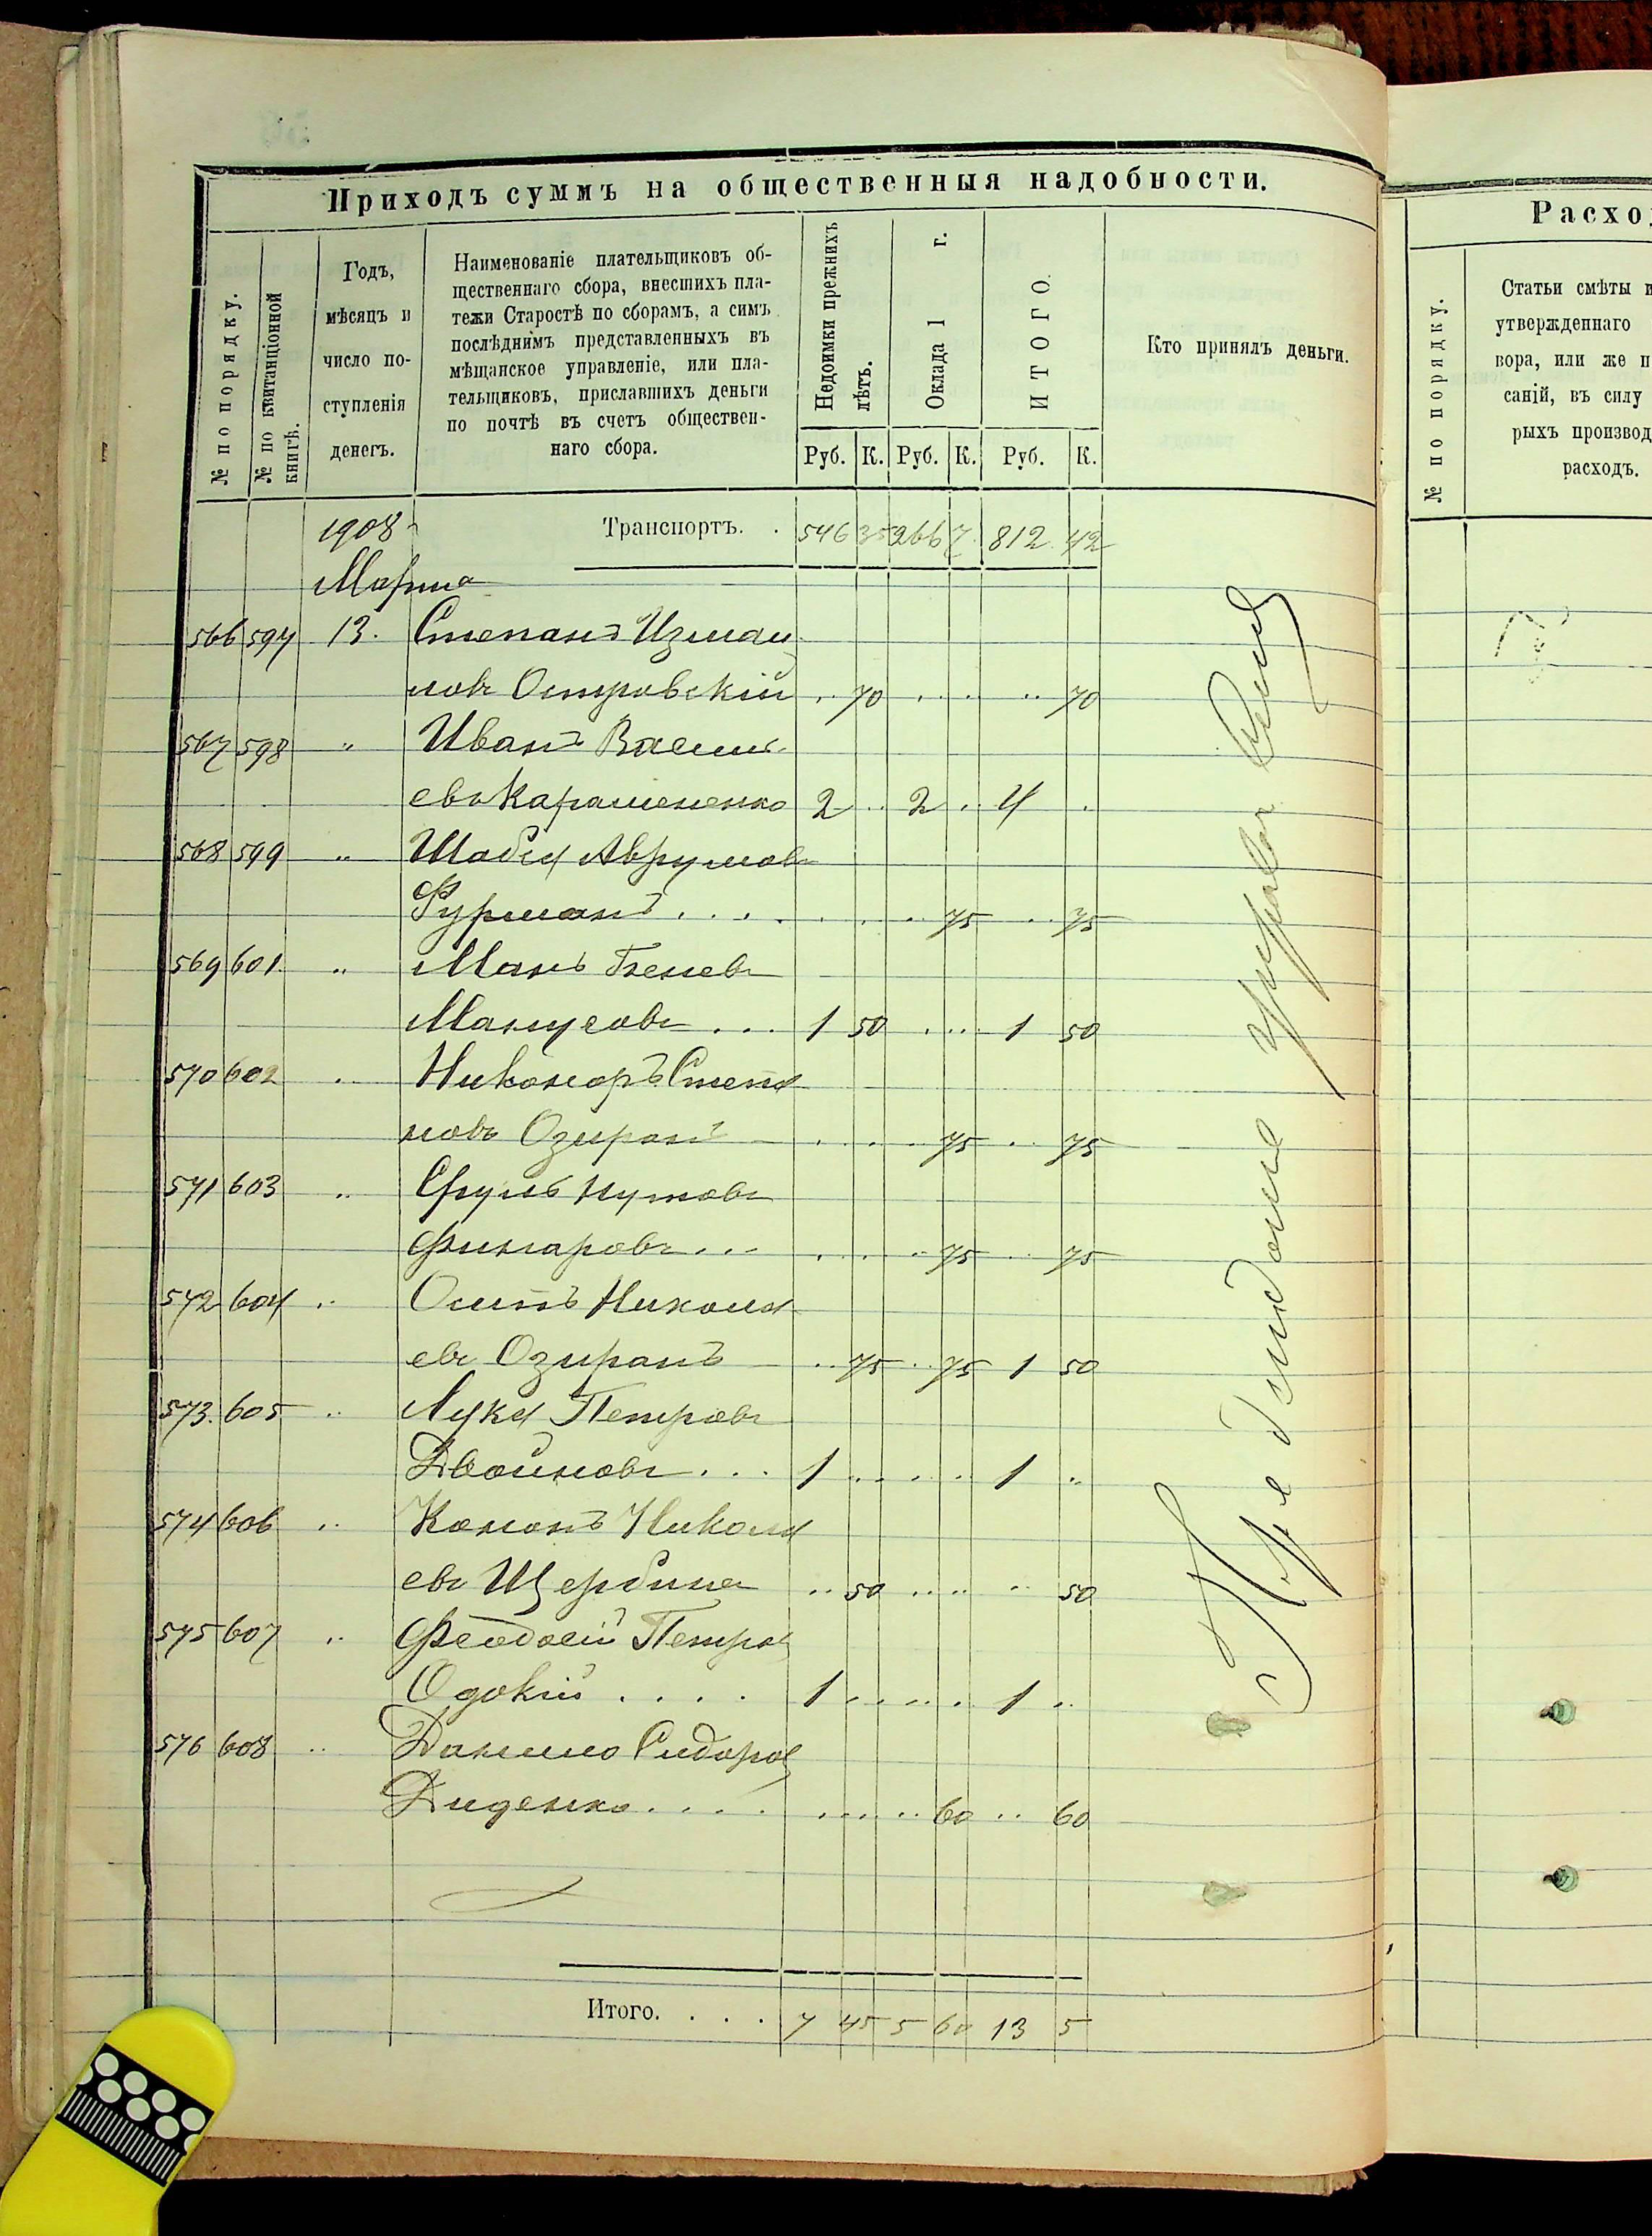 Приходъ суммъ на общественныя надобности.
№ по порядку.
№ по квитанціонной книгѣ.
Годъ,
мѣсяцъ и
число по-
ступленія
денегъ.
Наименованіе плательщиковъ об-
щественнаго сбора, внесшихъ пла-
тежи Старостѣ по сборамъ, а симъ
послѣднимъ представленныхъ въ
мѣщанское управленіе, или пла-
тельщиковъ, приславшихъ деньги
по почтѣ въ счетъ обществен-
наго сбора.
Недоимки прежнихъ лѣтъ.
Оклада 1 г.
ИТОГО.
Кто принялъ деньги.
Руб. К. Руб. К. Руб. К.
1908 Транспортъ. . 546 35 266 7 812 42
Марта
566 597 13. Степанъ Измаи
ловъ Островскій .. 70 .. .. .. 70
567 598 " Иванъ Василь
евъ 2 .. 2 . 4 .
568 599 " Шабся Аврумовъ
Фурманъ . . . . 75 .. 75
569 601 " Манъ
Манусовъ ... 1 50 .... 1 50
570 602 " Никаноръ Степа
новъ Озиранъ 75 .. 75
571 603 " Сруль Нутовъ
Финаровъ ... 75 .. 75
572 604 " Осипъ Никола
евъ Озиранъ .. 75 .. 75 1 50
573. 605 " Лука Петровъ
Двойновъ ... 1 .... 1 ..
574 606 " Кононъ Никола
евъ Щербина .. 50 .... .. 50
575 607 " Феодосій Петров
Одокій .... 1 .... 1 ..
576 608 " Данило Сидоров
Диденко .... 60 .. 60
Итого. . . . 7 45 5 60 13 5
Предсѣдатель управы
Расхо
№ по порядку.
Статьи смѣты и
утвержденнаго
вора, или же п
саній, въ силу
рыхъ производ
расходъ.